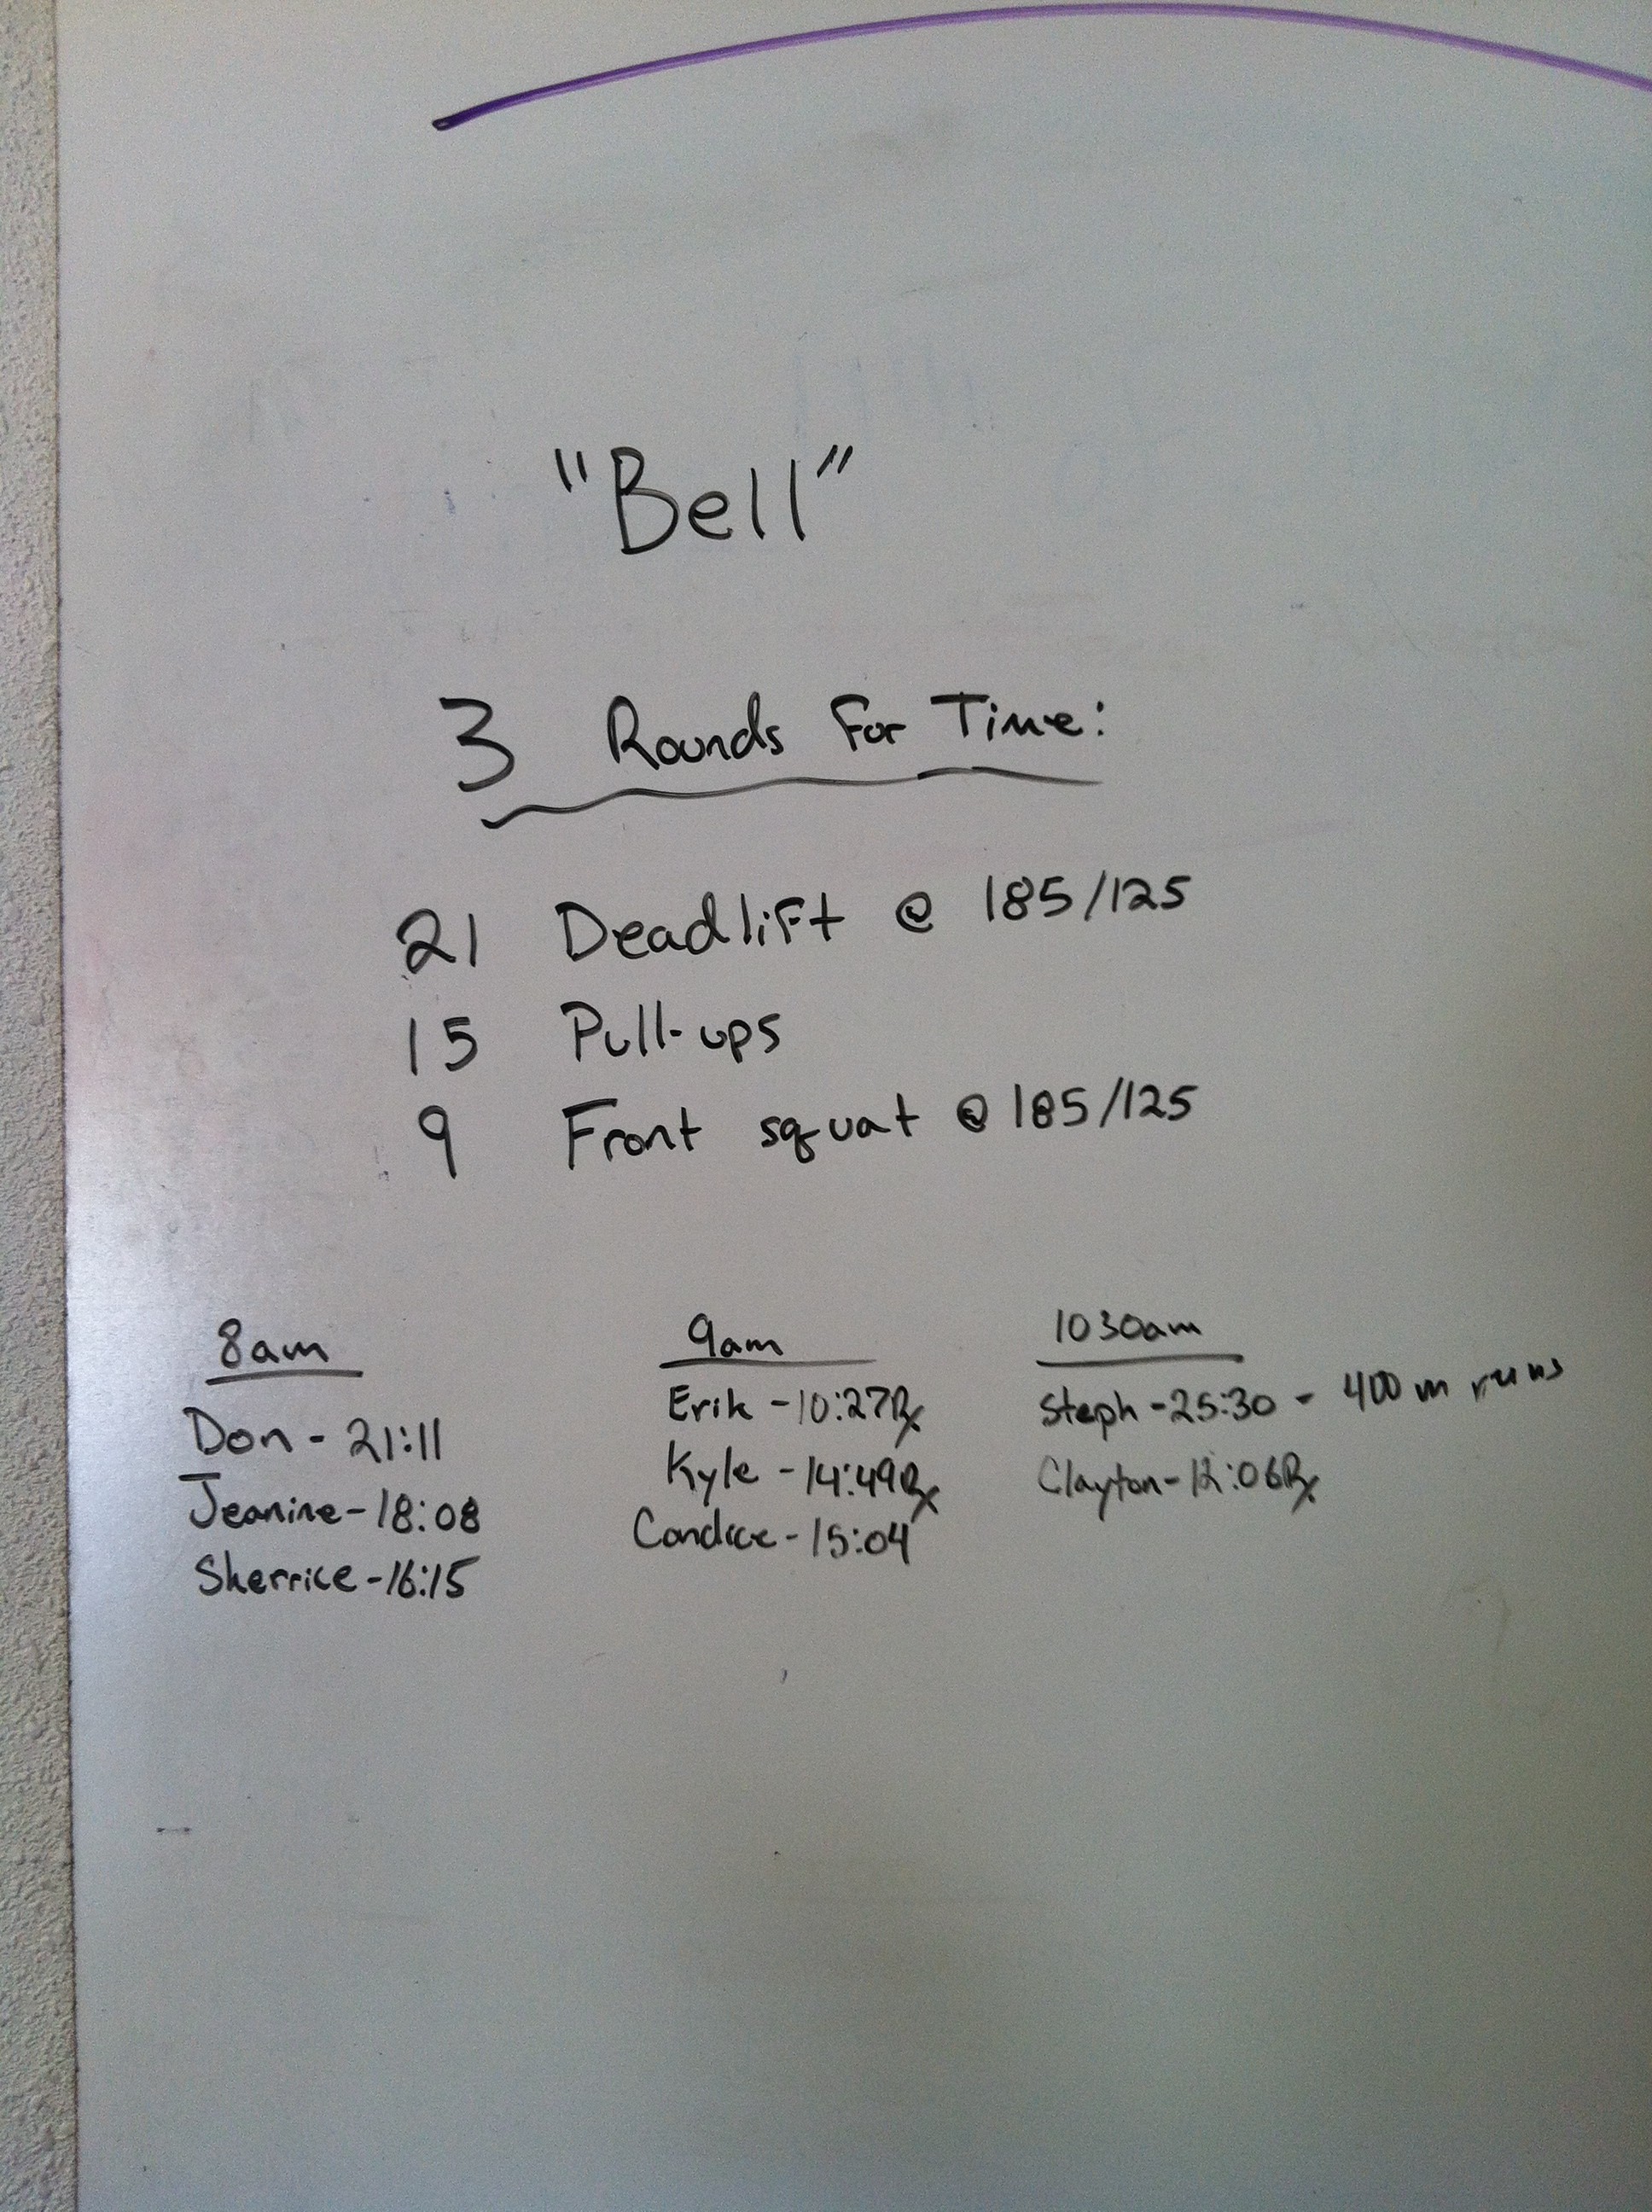 "Bell"
3 Rounds For Time:
21 Deadlift @ 185/125
15 Pull-ups
9 Front squat @ 185/125
8am
Don - 21:11
Jeanine - 18:08
Sherrice - 16:15
9am
Erik - 10:27 Rx
Kyle - 14:49 Rx
Candice - 15:04
1030am
Steph - 25:30 - 400 m runs
Clayton - 12:06 Rx